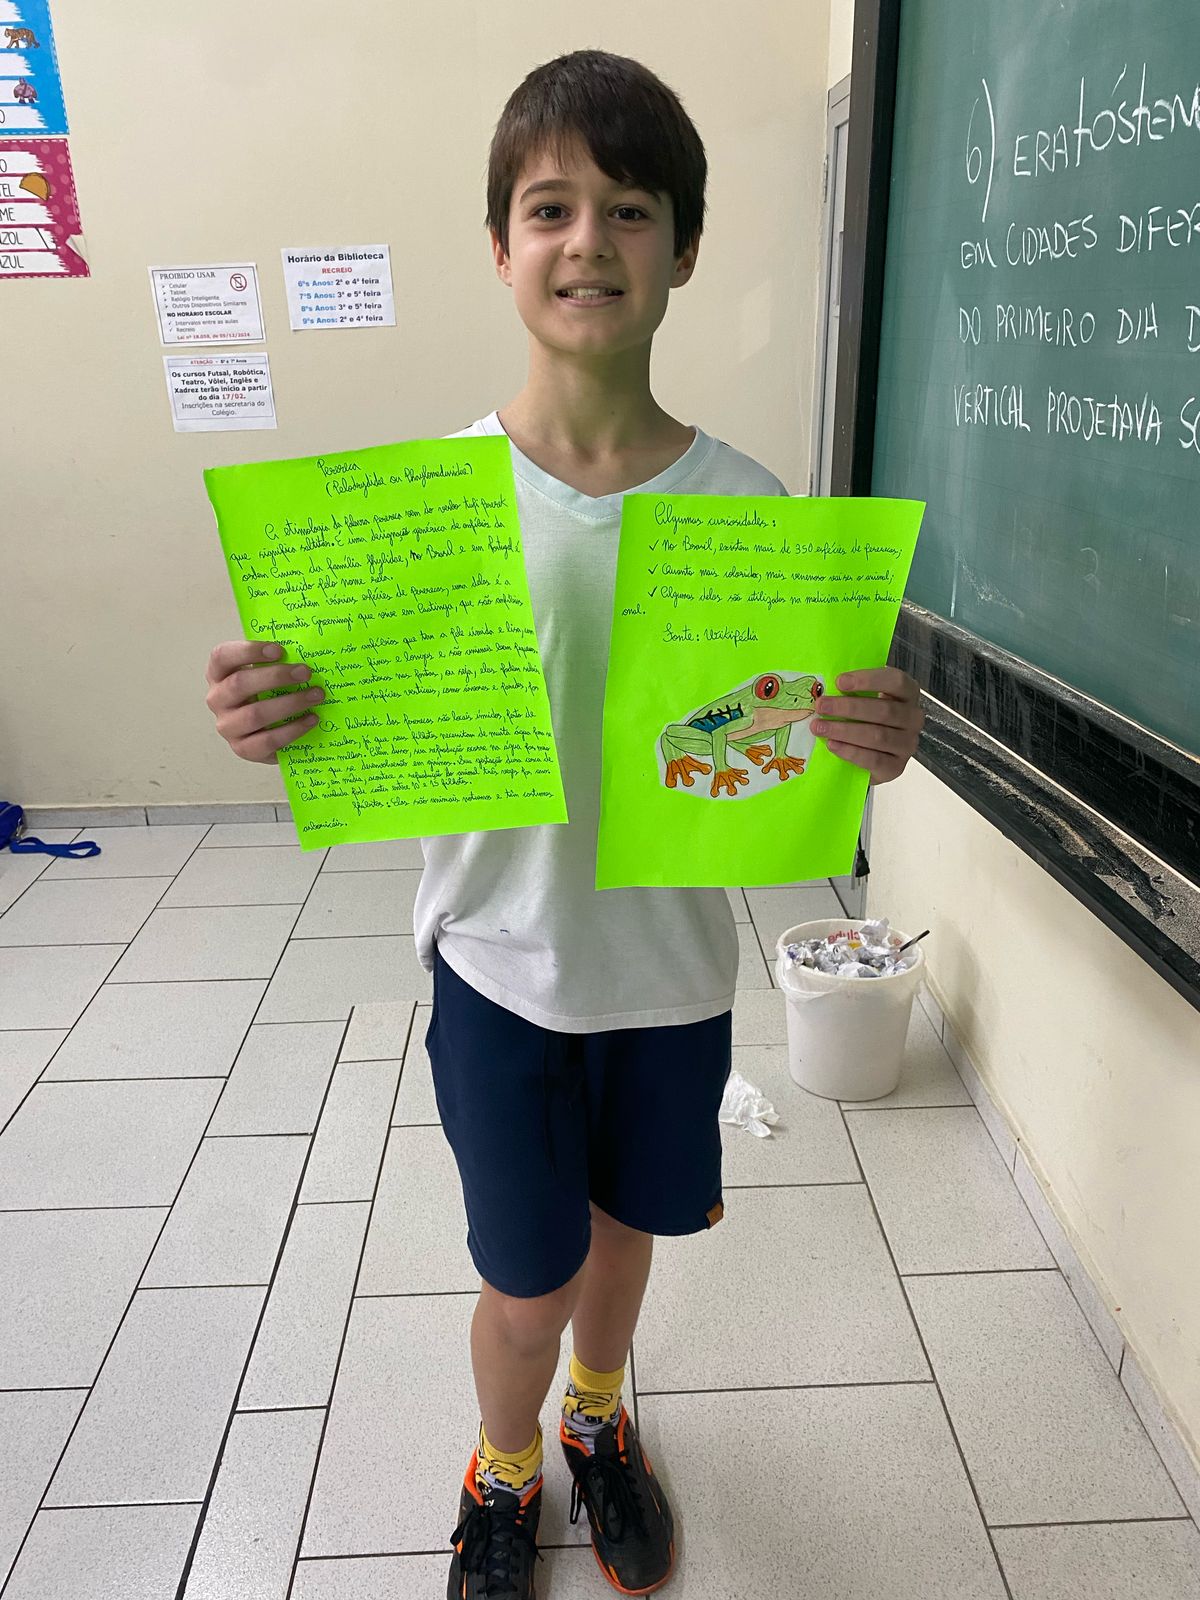 O
O
TEL
ME
AZUL
PROIBIDO USAR
Celular
Tablet
Relógio Inteligente
Outros Dispositivos Similares
NO HORÁRIO ESCOLAR
✓ Intervalos entre as aulas
✓ Recreio
Lei nº 18.058, de 05/12/2024
Horário da Biblioteca
RECREIO
6ºs Anos: 2ª e 4ª feira
7ºS Anos: 3ª e 5ª feira
8ºs Anos: 3ª e 5ª feira
9ºs Anos: 2ª e 4ª feira
ATENÇÃO - 6º e 7º Anos
Os cursos Futsal, Robótica,
Teatro, Vôlei, Inglês e
Xadrez terão início a partir
do dia 17/02.
Inscrições na secretaria do
Colégio.
6) ERATÓSTEN
EM CIDADES DIFER
DO PRIMEIRO DIA D
VERTICAL PROJETAVA SO
Perereca
(Pelodrydidae ou Phyllomedusidae)
A etimologia da palavra perereca vem do verbo tupi
que significa saltitar. É uma designação genérica de anfíbios da
ordem Anura da família Hylidae, no Brasil e em Portugal é
bem conhecido pelo nome rela.
Existem várias espécies de pererecas, uma delas é a
Corythomantis Greeningi que vive em Caatinga, que são anfíbios
Pererecas são anfíbios que têm a pele úmida e lisa, com
pernas finas e longas e são animais bem pequenos.
possuem ventosas nas pontas, ou seja, elas podem subir
em superfícies verticais, como árvores e paredes, por
Os habitats das pererecas são locais úmidos, perto de
córregos e riachos, já que seus filhotes necessitam de muita água para se
desenvolverem melhor. Além disso, sua reprodução ocorre na água por meio
de ovos que se desenvolverão em girinos. Sua gestação dura cerca de
12 dias, em média, acontece a reprodução do animal três vezes por ano.
Cada ninhada pode conter entre 10 e 25 filhotes.
Hábitos: Elas são animais noturnos e têm costumes
arborícolas.
Algumas curiosidades:
✓ No Brasil, existem mais de 350 espécies de pererecas;
✓ Quanto mais colorido, mais venenoso vai ser o animal;
✓ Algumas delas são utilizadas na medicina indígena tradici-
onal.
Fonte: Wikipédia